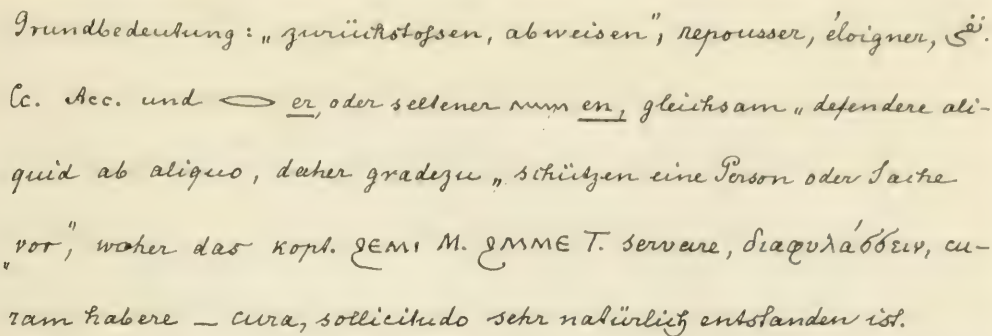 Grundbedeutung: „zurückstossen, abweisen", repousser, éloigner,
Cc. Acc. und 𓂋 er, oder seltener 𓈖 en, gleichsam „defendere ali-
quid ab aliquo, daher gradezu „schützen eine Person oder Sache
„vor", woher das kopt. ϩⲉⲙⲓ M. ϩⲙⲙⲉ T. servare, διαφυλάσσειν, cu-
ram habere – cura, sollicitudo sehr natürlich entstanden ist.